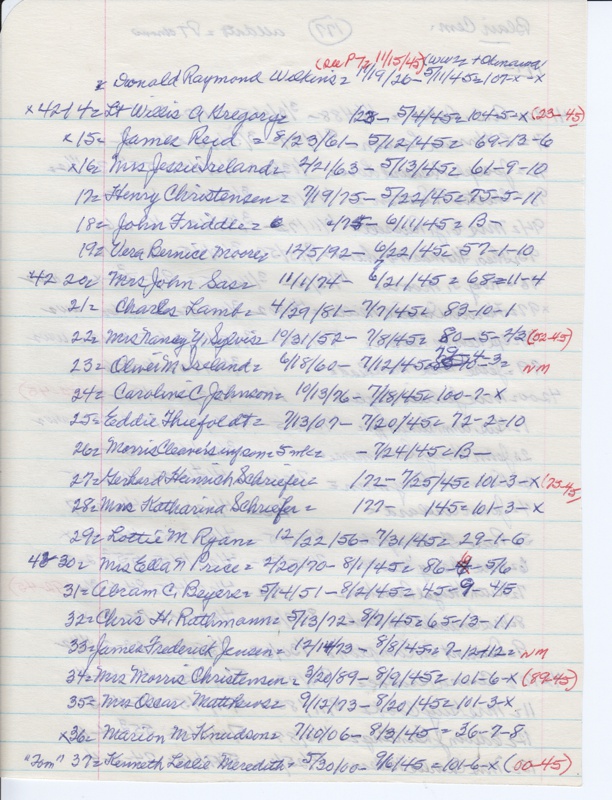 (see P 72 11/15/45) (WW2 + Okinawa)
x Donald Raymond Wilkins = 7/19/26 - 5/11/45 = 107-x-x
x 4214 = Lt Willis A Gregory = 1/23 - 5/4/45 = 104-5-x (23-45)
x 15 = James Reid = 8/23/61 - 5/12/45 = 69-13-6
x 16 = Mrs Jessie Ireland = 2/21/63 - 5/13/45 = 61-9-10
17 = Henry Christensen = 7/19/75 - 5/22/45 = 75-5-11
18 = John Friddle = 4/75 - 6/11/45 = B-
19 = Vera Bernice Moore = 12/5/92 - 6/22/45 = 57-1-10
42 20 = Mrs John Sas = 11/1/74 - 6/21/45 = 68-11-4
21 = Charles Lamb = 4/29/81 - 7/7/45 = 83-10-1
22 = Mrs Nancy Y. Sylvis 10/31/52 - 7/8/45 = 80-5-2/3 (52-45)
23 = Oliver M Ireland = 6/18/60 - 7/12/45 = 79-4-3 = NM
24 = Caroline C Johnson = 10/13/76 - 7/18/45 = 100-7-x
25 = Eddie Thiefoldt = 7/13/07 - 7/20/45 = 72-2-10
26 = Morris Cleaver's son = 5 m = - 7/24/45 = B-
27 = Gerhard Heinrich Schriefer = 172 - 7/25/45 = 101-3-x (25-45)
28 = Mrs Katharina Schriefer = 177 145 = 101-3-x
29 = Lottie M Ryan = 12/22/56 - 7/31/45 = 29-1-6
42 30 = Mrs Ella N Price = 2/20/70 - 8/1/45 = 86 - 5/6
31 = Abram C. Beyers = 5/14/51 - 8/2/45 = 45-9-4/5
32 = Chris H. Rathmann = 5/13/72 - 8/7/45 = 65-13-11
33 = James Frederick Jensen = 12/14/73 - 8/8/45 = 7-12+12 = NM
34 = Mrs Morris Christensen = 3/20/89 - 8/9/45 = 101-6-x (89-45)
35 = Mrs Oscar Matthews = 9/12/73 - 8/20/45 = 101-3-x
x 36 = Marion M Knudson = 7/10/06 - 8/3/45 = 36-7-8
"Tom" 37 = Kenneth Leslie Meredith = 5/30/00 - 9/6/45 = 101-6-x (00-45)